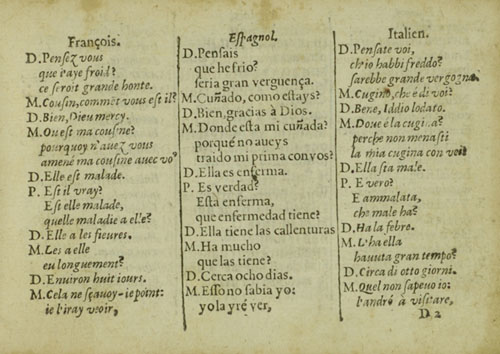 François.
D. Pensez vous
que i'aye froid?
ce seroit grande honte.
M. Cousin, commēt vous est il?
D. Bien, Dieu mercy.
M. Ou est ma cousine?
pourquoy n'auez vous
amené ma cousine auec vo⁹
D. Elle est malade.
P. Est il vray?
Est elle malade,
quelle maladie a elle?
D. Elle a les fieures.
M. Les a elle
eu longuement?
D. Enuiron huit iours.
M. Cela ne sçauoy-ie point:
ie l'iray veoir,
Espagnol.
D. Pensais
que he frio?
seria gran verguença.
M. Cuñado, como estays?
D. Bien, gracias à Dios.
M. Donde esta mi cuñada?
porqué no aueys
traido mi prima con vos?
D. Ella es enferma.
P. Es verdad?
Esta enferma,
que enfermedad tiene?
D. Ella tiene las callenturas
M. Ha mucho
que las tiene?
D. Cerca ocho dias.
M. Esso no sabia yo:
yo la yré ver,
Italien.
D. Pensate voi,
ch'io habbi freddo?
sarebbe grande vergogna.
M. Cugino, che è di voi?
D. Bene, Iddio lodato.
M. Doue è la cugina?
perche non menasti
la mia cugina con voi?
D. Ella sta male.
P. E vero?
E ammalata,
che male ha?
D. Ha la febre.
M. L'ha ella
hauuta gran tempo?
D. Circa di otto giorni.
M. Quel non sapeuo io:
l'andrè à visitare,
D 2